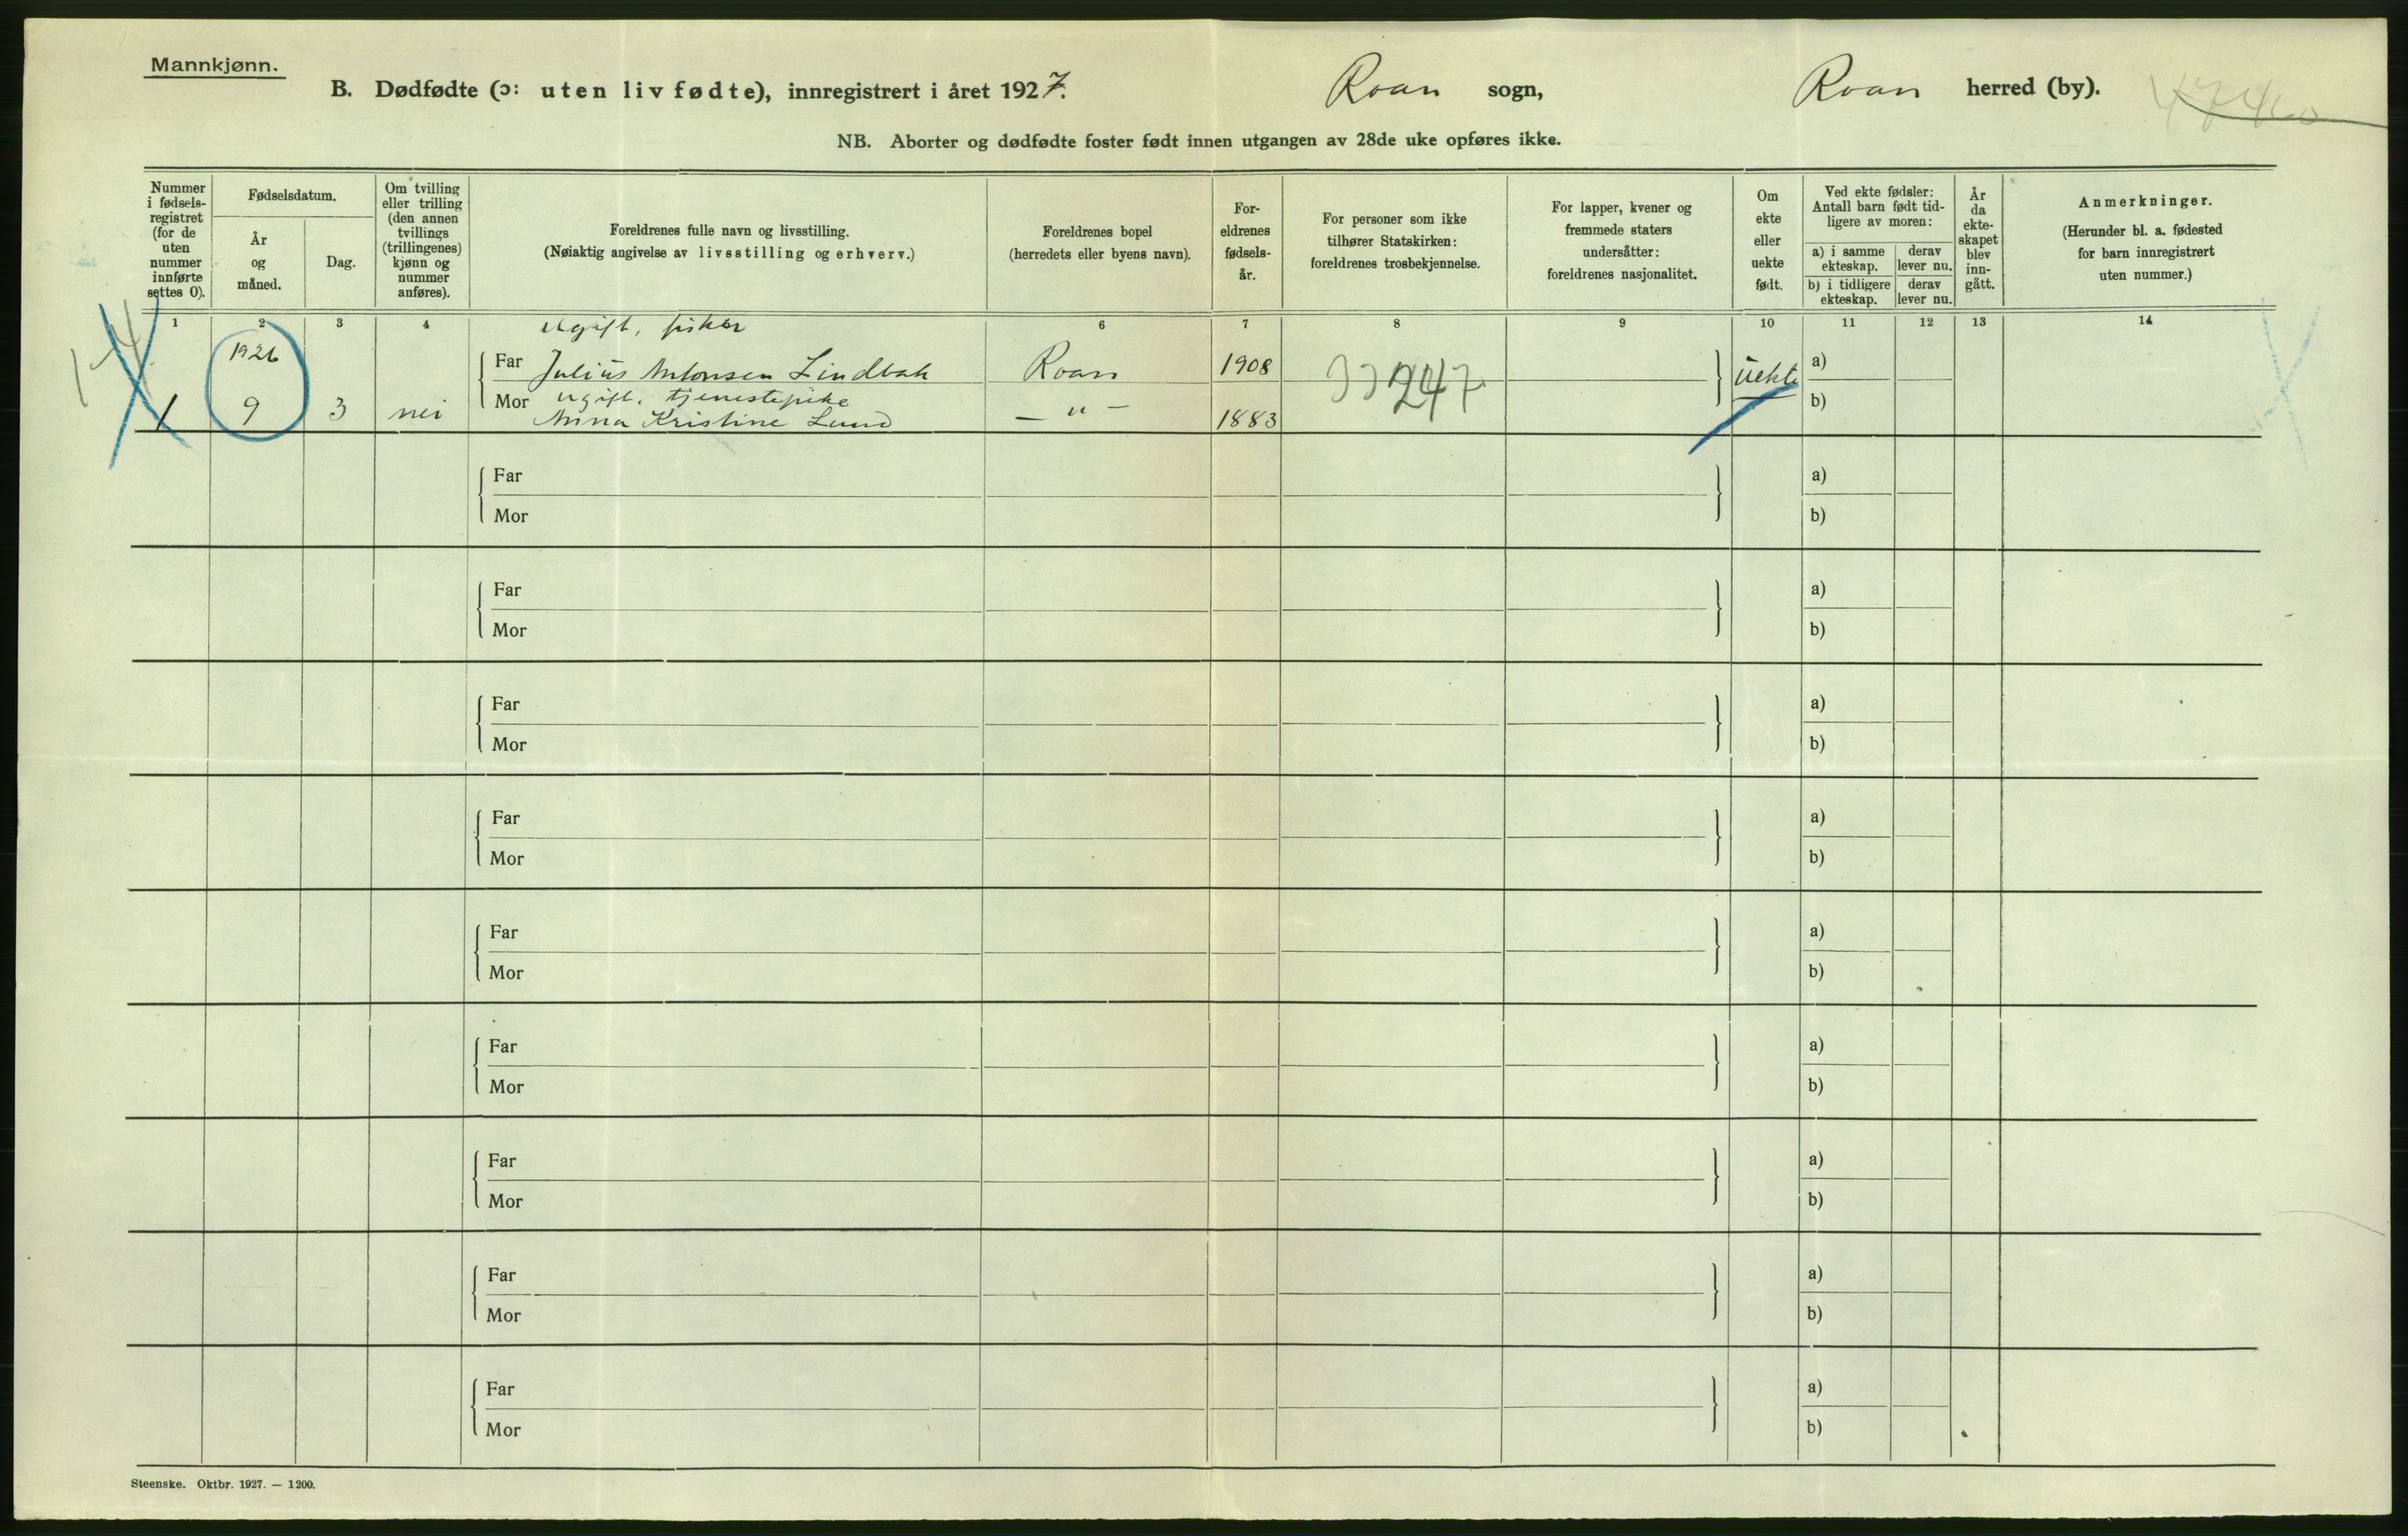 Mannkjønn.
B. Dødfødte (ɔ: uten liv fødte), innregistrert i året 1927. Roan sogn, Roan herred (by).
NB. Aborter og dødfødte foster født innen utgangen av 28de uke opføres ikke.
Nummer i fødsels-registret (for de uten nummer innførte settes 0).
Fødselsdatum.
År og måned.
Dag.
Om tvilling eller trilling (den annen tvillings (trillingenes) kjønn og nummer anføres).
Foreldrenes fulle navn og livsstilling.
(Nøiaktig angivelse av livsstilling og erhverv.)
Foreldrenes bopel
(herredets eller byens navn).
For-eldrenes fødsels-år.
For personer som ikke tilhører Statskirken: foreldrenes trosbekjennelse.
For lapper, kvener og fremmede staters undersåtter: foreldrenes nasjonalitet.
Om ekte eller uekte født.
Ved ekte fødsler: Antall barn født tid-ligere av moren:
a) i samme ekteskap.
derav lever nu.
b) i tidligere ekteskap.
derav lever nu.
År da ekte-skapet blev inn-gått.
Anmerkninger.
(Herunder bl. a. fødested for barn innregistrert uten nummer.)
1 2 3 4 6 7 8 9 10 11 12 13 14
ugift, fisker
1926 Far Julius Antonsen Lindbak Roan 1908 uekte a)
ugift. tjenestepike
1 9 3 nei Mor Anna Kristine Lund — " — 1883 b)
Far a)
Mor b)
Far a)
Mor b)
Far a)
Mor b)
Far a)
Mor b)
Far a)
Mor b)
Far a)
Mor b)
Far a)
Mor b)
Far a)
Mor b)
Far a)
Mor b)
Steenske. Oktbr. 1927. — 1200.